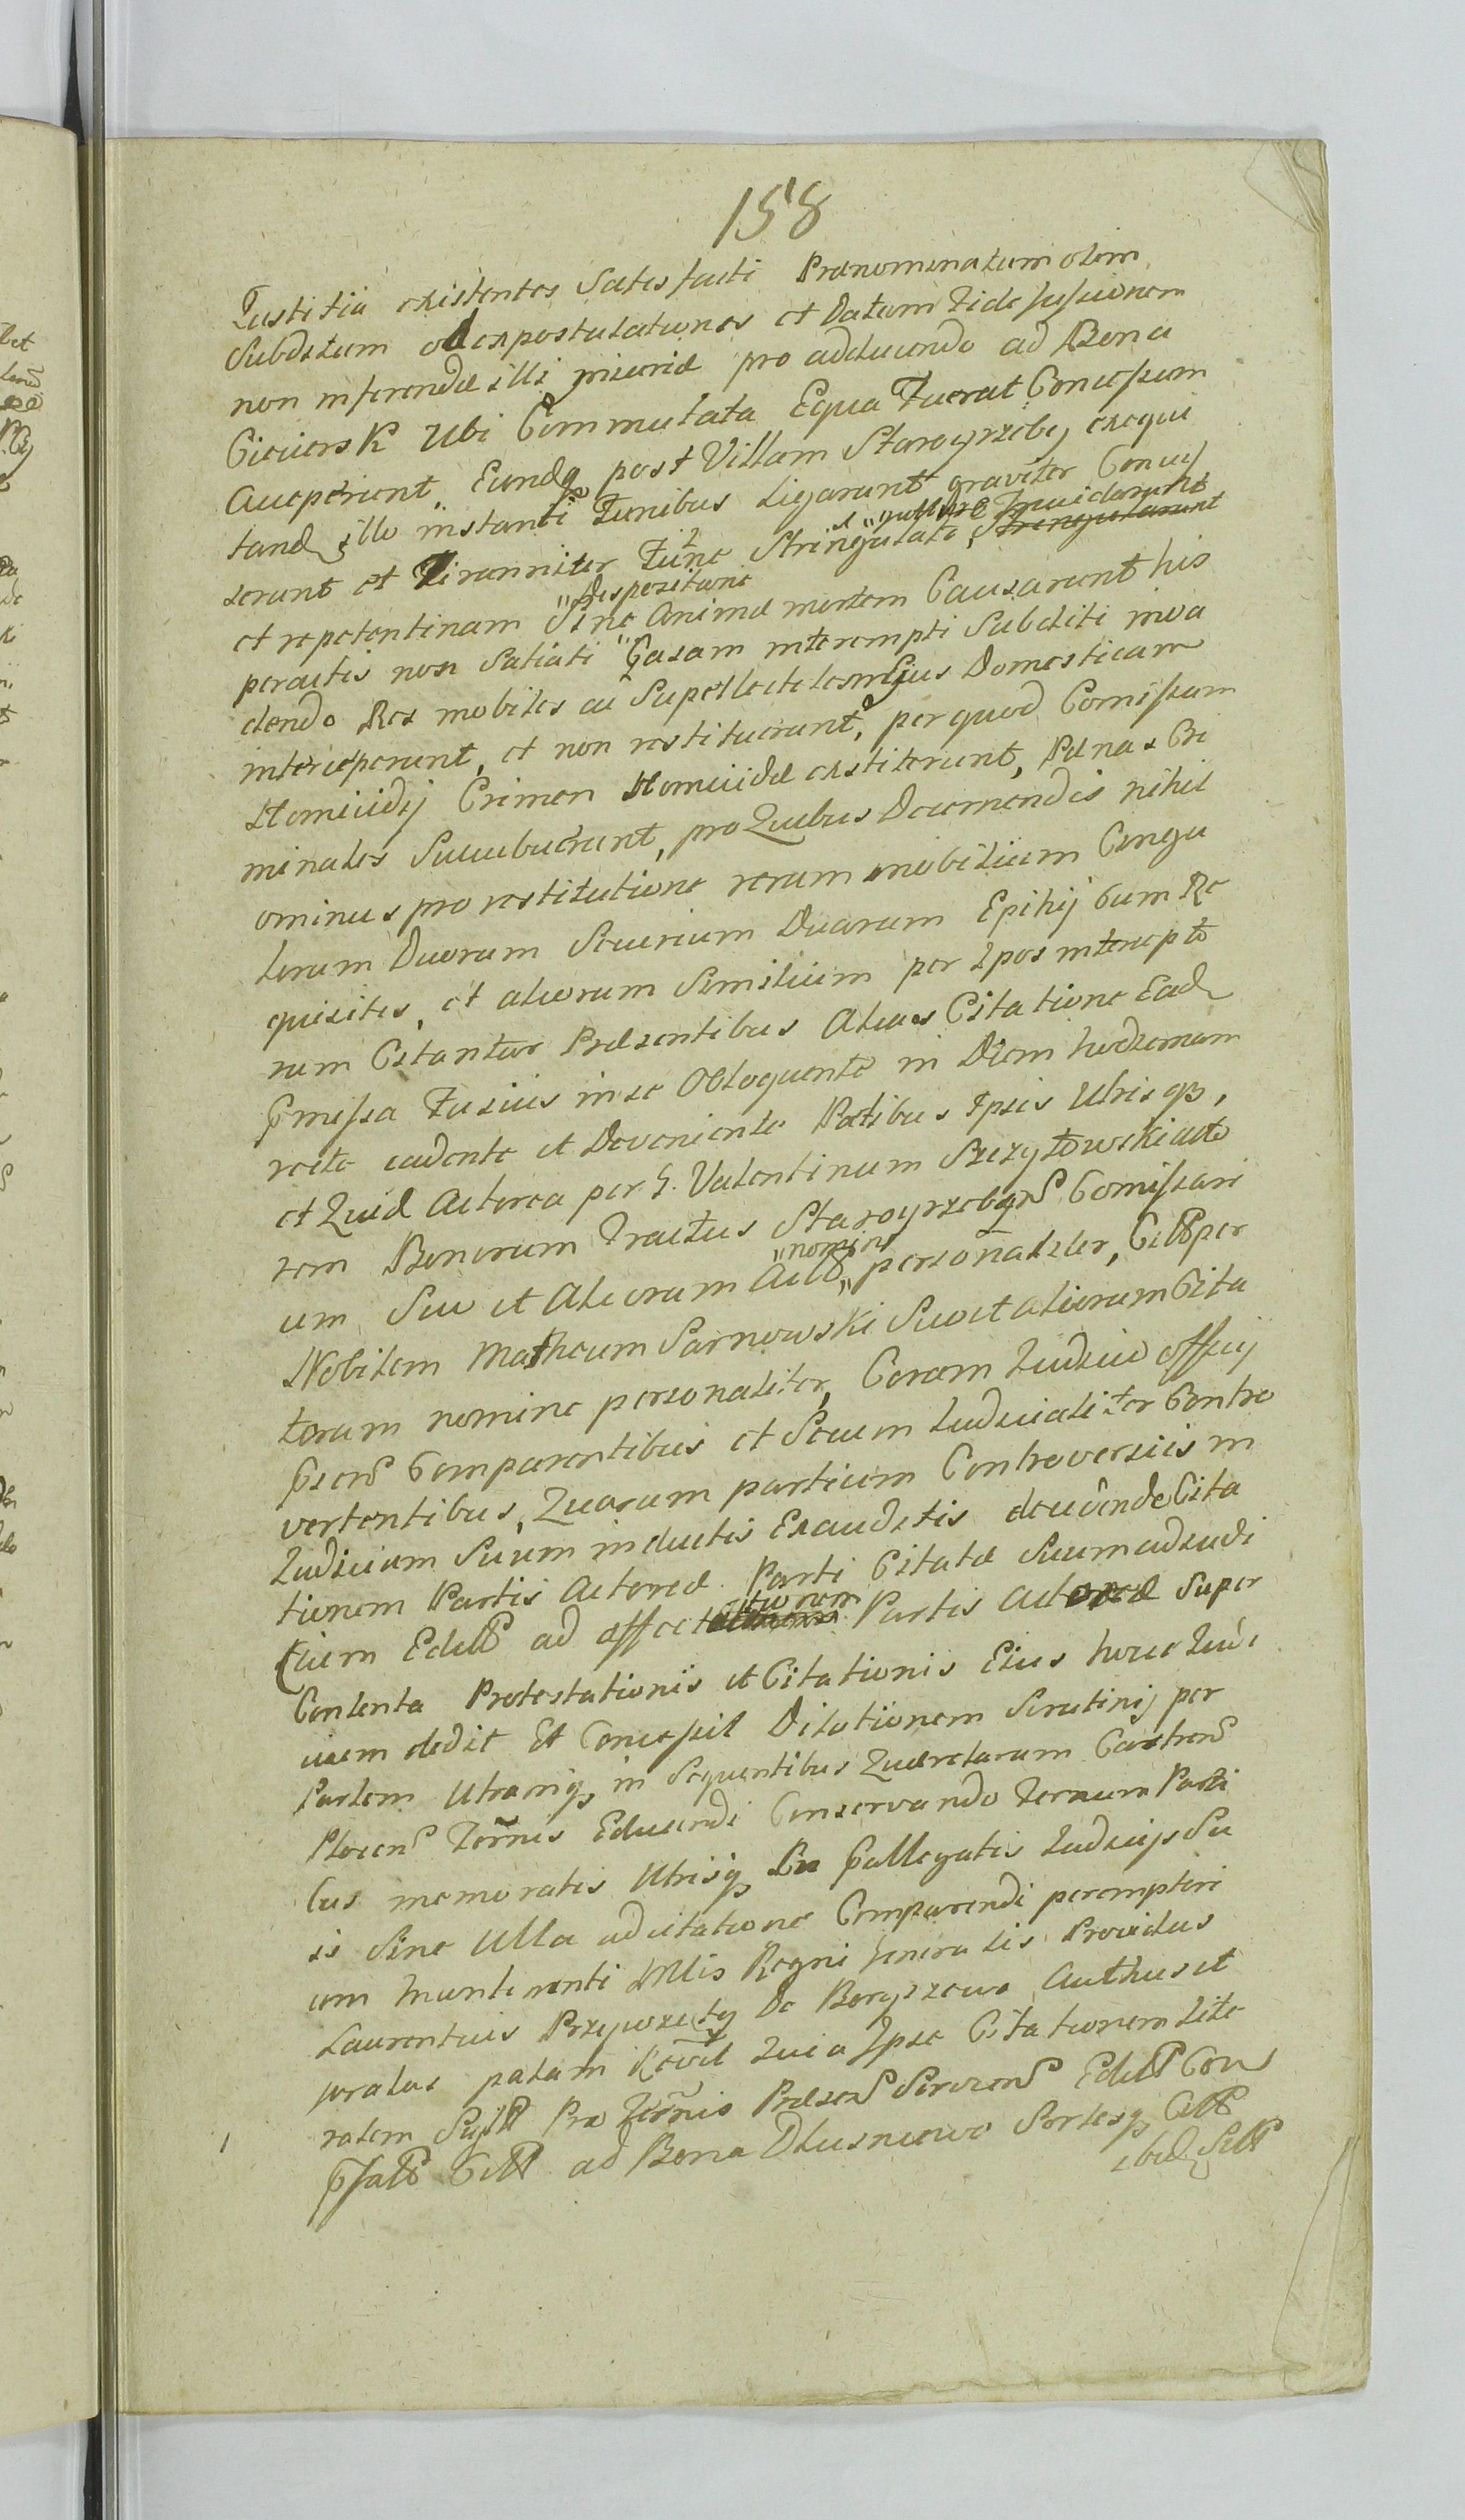 158
Iustitia existentes Satisfacti Prænominatum olim
Subditum ad expostulationes et Datam Fidejussionem
non inferendæ illi iniuriæ pro adducendo ad Bona
Ciciersk Ubi Commutata Equa Fuerat Concessum
Acceperunt, Eundq post Villam Starogrzeby exequi
tand illo instanti Funibus Ligarunt graviter Concus
serunt et Tiranniter Fune Stringulato, gutture Trucidarunt Strengularunt
et repetentinam Sine Dispozitione Animæ mortem Causarunt his
peractis non Satiati Casam interempti Subditi inva
dendo Res mobiles ac Supellectilem Ejus Domesticam
interceperunt, et non restituerunt, per quod Comissum
Homicidij Crimen Homicidæ exstiterunt, Pænas Cri
minales Succubuerunt, pro Quibus Decernendis nihil
ominus pro restitutione rerum mobilium Cingu
lorum Duorum Securium Duarum Epihij Cum Re
quisitis, et aliorum Similium per Ipos intercepto
rum Citantur Præsentibus Alias Citatione Ead
pmissa Fusius in se Obloquente in Diem hodiernam
recte cadente et Deveniente Patibus Ipsis Utrisq,
et Quid Actorea per G. Valentinum Szczytowski acto
rem Bonorum Tractus Starogrzebys Comissari
um Suo et Aliorum Act nomine personaliter, Citt per
Nobilem Matheum Sarnowski Suo et aliorum Cita
torum nomine personaliter, Coram Iudicio officij
pseris Comparentibus et Secum Iudicialiter Contro
vertentibus, Quarum partium Controversiis in
Iudicium Suum inductis Exauditis decernde Cita
tionem Partis Actoreæ Parti Citatæ Suum adiudi
cium Edett ad affectationem Partis Actoreæ Super
Contenta Protestationis et Citationis Eius hocce Iudi
cium dedit Et Concessit Dilationem Scrutinij per
Partem Utramq in Sequentibus Quærelarum Castren
Plocen Termis Educendi Conservando Terminum Parti
bus memoratis Utrisq in pallegatis Iudicijs Su
is Sine Ulla adcitatione Comparendi peremptori
um Ministerialis Regni Generalis Providus
Laurentius De Boryszewo Authus et
juratus palam Recvit Quia Ipse Citationem Lite
ralem Pro Termio Præsen Servien Edett Con
ad Bona Dlusniewo Sortesq Citt
ibid Sitt